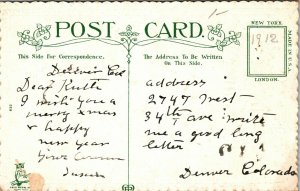 POST CARD.
This Side for Correspondence.
The Address To Be Written
On This Side.
NEW YORK.
MADE IN U.S.A.
LONDON.
1912
Denver Col
Dear Ruth
I wish you a
merry xmas
& happy
new year
Your
address
2747 West
34th ave write
me a good long
letter
Denver Colorado